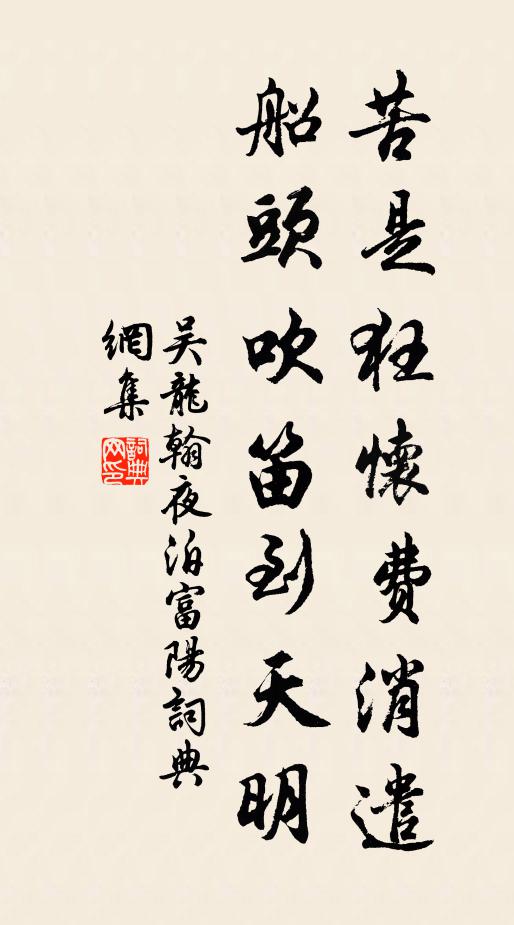 苦是狂懷費消遣
船頭吹笛到天明
吴龍翰夜泊富陽詞典
網集
詞典
网印